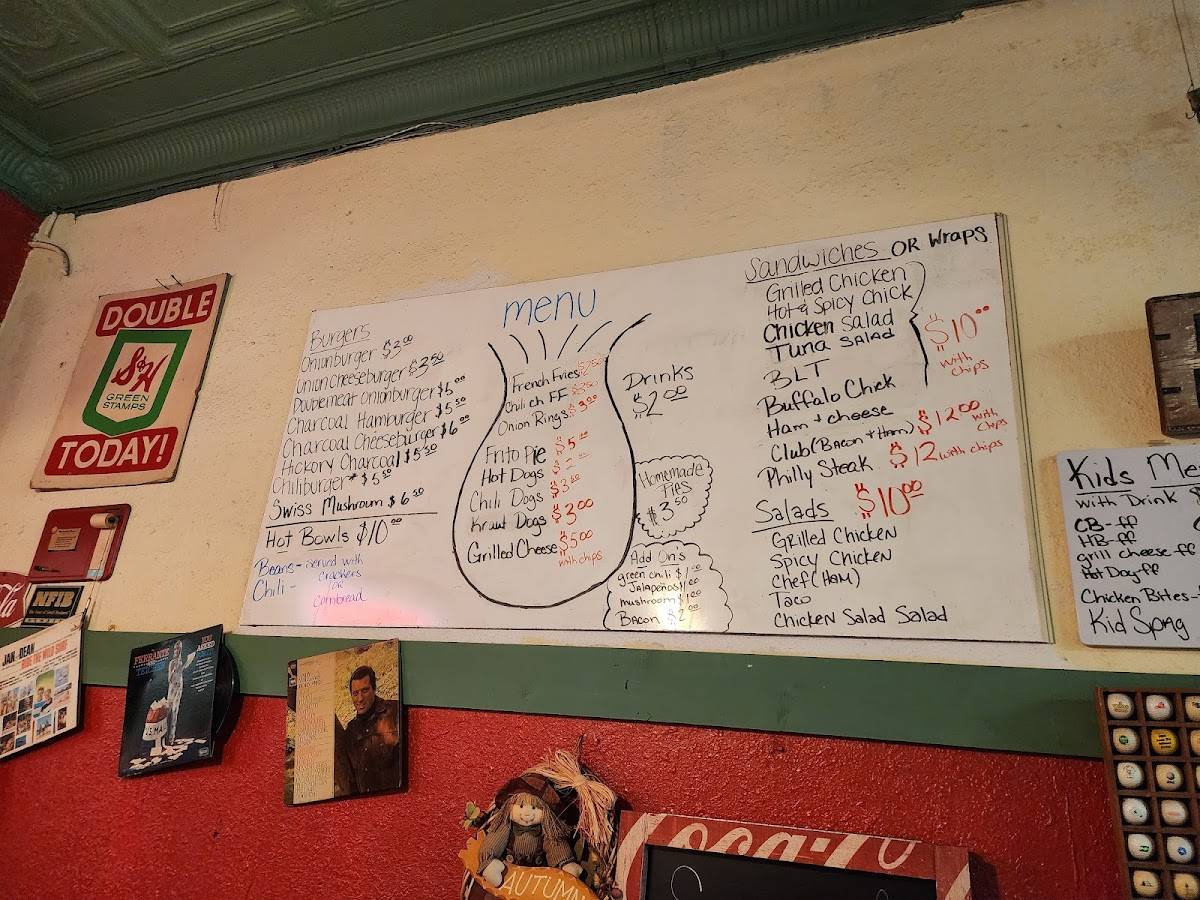 DOUBLE
S&H
GREEN
STAMPS
TODAY!
menu
Burgers
Onionburger $3.00
Unioncheeseburger $3.50
Doublemeat Onionburger $5.00
Charcoal Hamburger $5.50
Charcoal Cheeseburger $6.00
Hickory Charcoal $5.50
Chiliburger* $5.50
Swiss Mushroom $6.50
Hot Bowls $10.00
Beans - served with
crackers
or
cornbread
Chili -
French Fries
Chili ch FF
Onion Rings $3.00
Frito Pie $5.00
Hot Dogs
Chili Dogs
Kraut Dogs $3.00
Grilled Cheese $5.00
with chips
Drinks
$2.00
Homemade
Pies
$3.50
Add On's
green chili $1.00
Jalapeños
mushroom $1.00
Bacon $2.00
Sandwiches OR Wraps
Grilled Chicken
Hot & Spicy Chick
Chicken Salad
Tuna SALAD
BLT
Buffalo Chick
Ham + cheese
$10.00
with
chips
Club (Bacon + Ham) $12.00 with chips
Philly Steak $12 with chips
Salads $10.00
Grilled Chicken
Spicy Chicken
Chef (HAM)
Taco
Chicken Salad Salad
Kids Me
with Drink
CB-ff
HB-ff
grill cheese-ff
Hot Dog-ff
Chicken Bites-
Kid Spag
NFIB
JAN & DEAN
RIDE THE WILD SURF
FERRANTE
YOU
ASKED
AUTUMN
Coca-Co